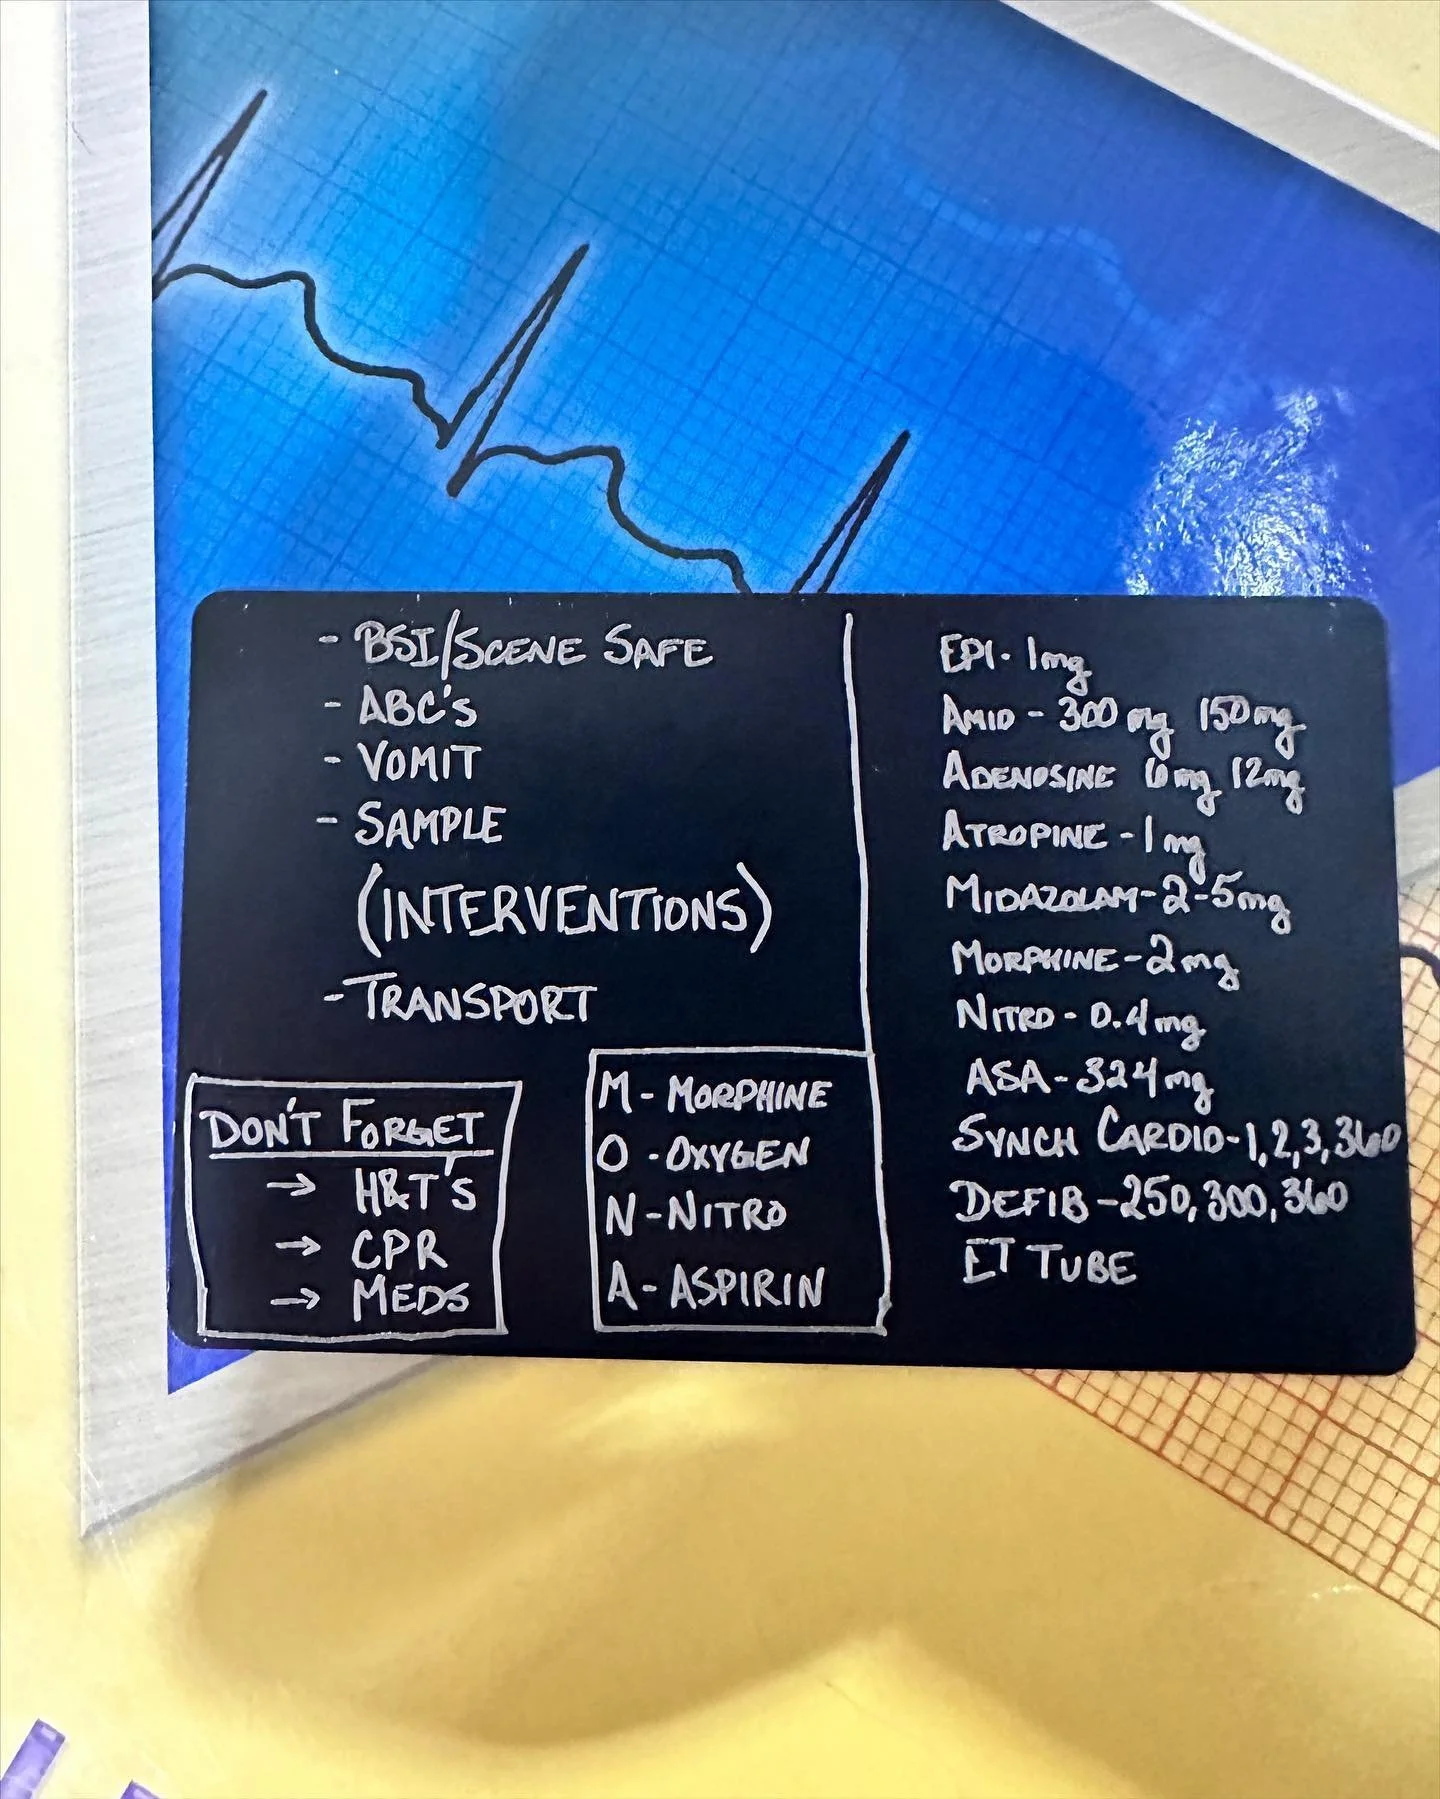 - BSI/SCENE SAFE
- ABC'S
- VOMIT
- SAMPLE
(INTERVENTIONS)
- TRANSPORT
DON'T FORGET
→ H&T'S
→ CPR
→ MEDS
M - MORPHINE
O - OXYGEN
N - NITRO
A - ASPIRIN
EPI - 1mg
AMIO - 300mg 150mg
ADENOSINE 6mg 12mg
ATROPINE - 1mg
MIDAZOLAM - 2-5mg
MORPHINE - 2mg
NITRO - 0.4mg
ASA - 324mg
SYNCH CARDIO - 1,2,3,360
DEFIB - 250,300,360
ET TUBE